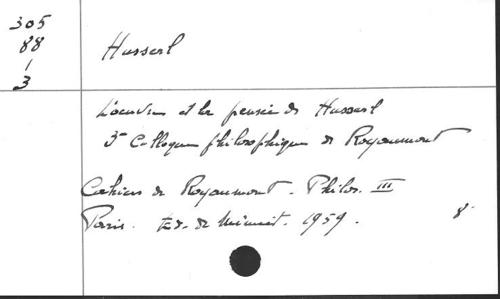 305
88
1
3
Husserl
L'oeuvre et la pensée de Husserl
3e Colloque philosophique de Royaumont
Cahiers de Royaumont. Philos. III
Paris. Ed. de Minuit. 1959.
8°